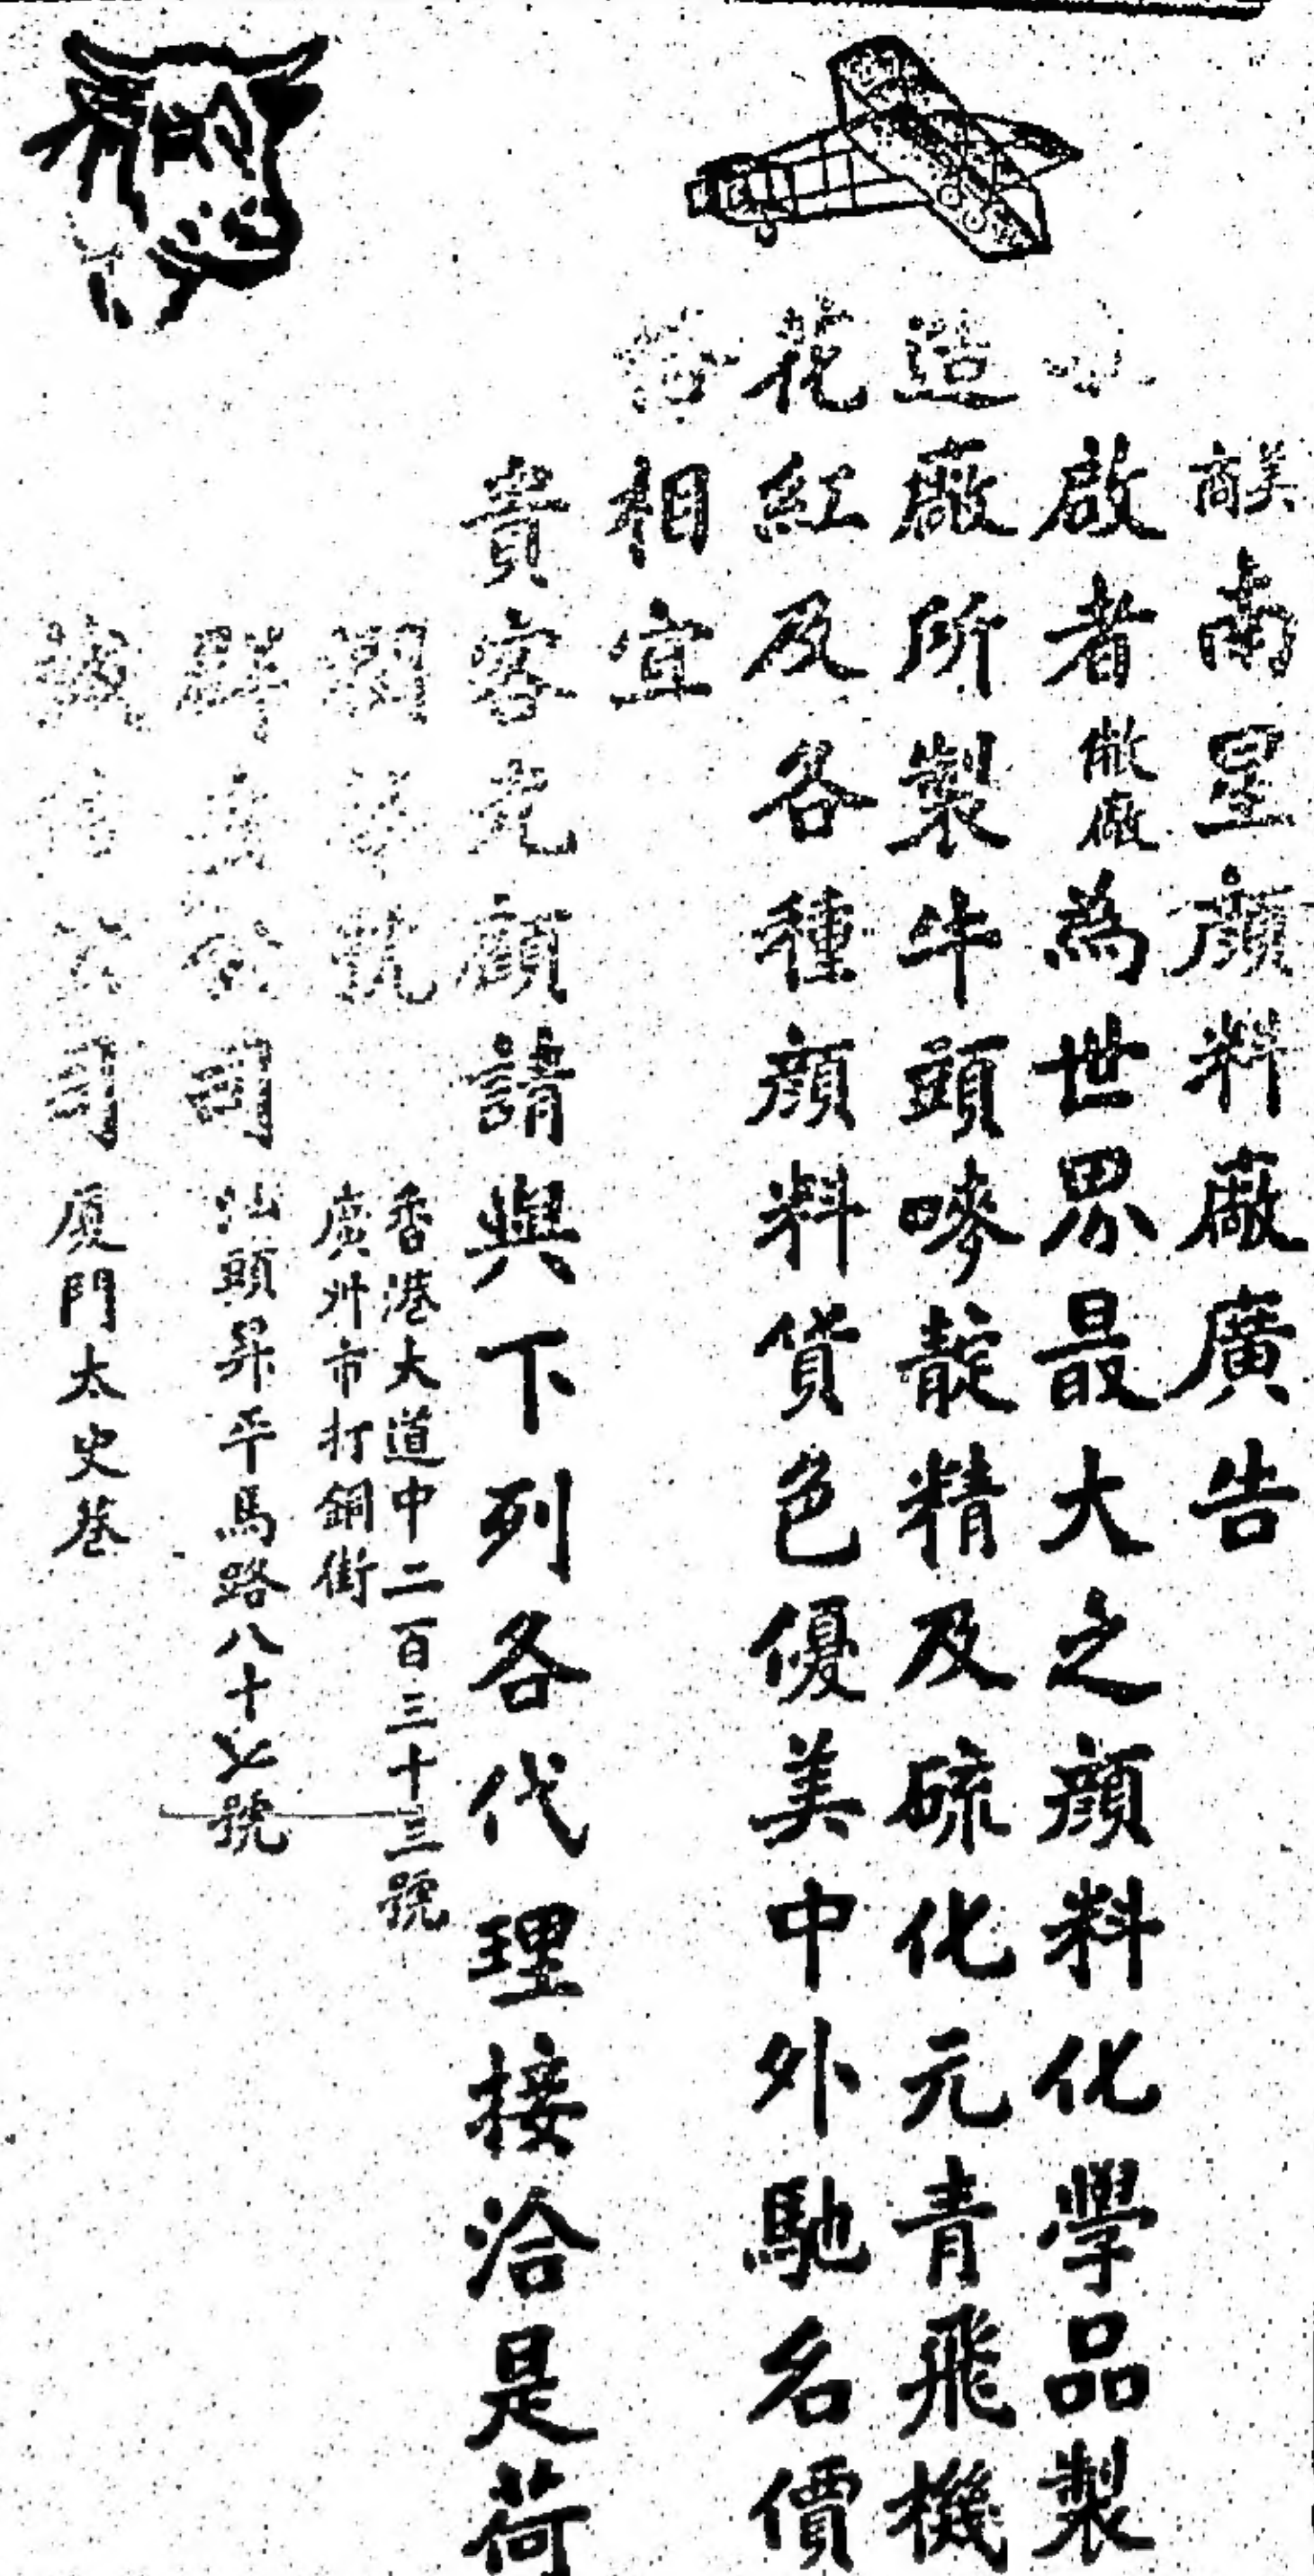 美商南星顔料廠廣告
啟者敝廠為世界最大之顔料化學品製
造廠所製牛頭嘜靛精及硫化元青飛機
花紅及各種顔料貨色優美中外馳名價
相宜
貴客光顧請與下列各代理接洽是荷
香港大道中二百三十三號
廣州市打銅街
公司 汕頭昇平馬路八十七號
公司 厦門太史巷